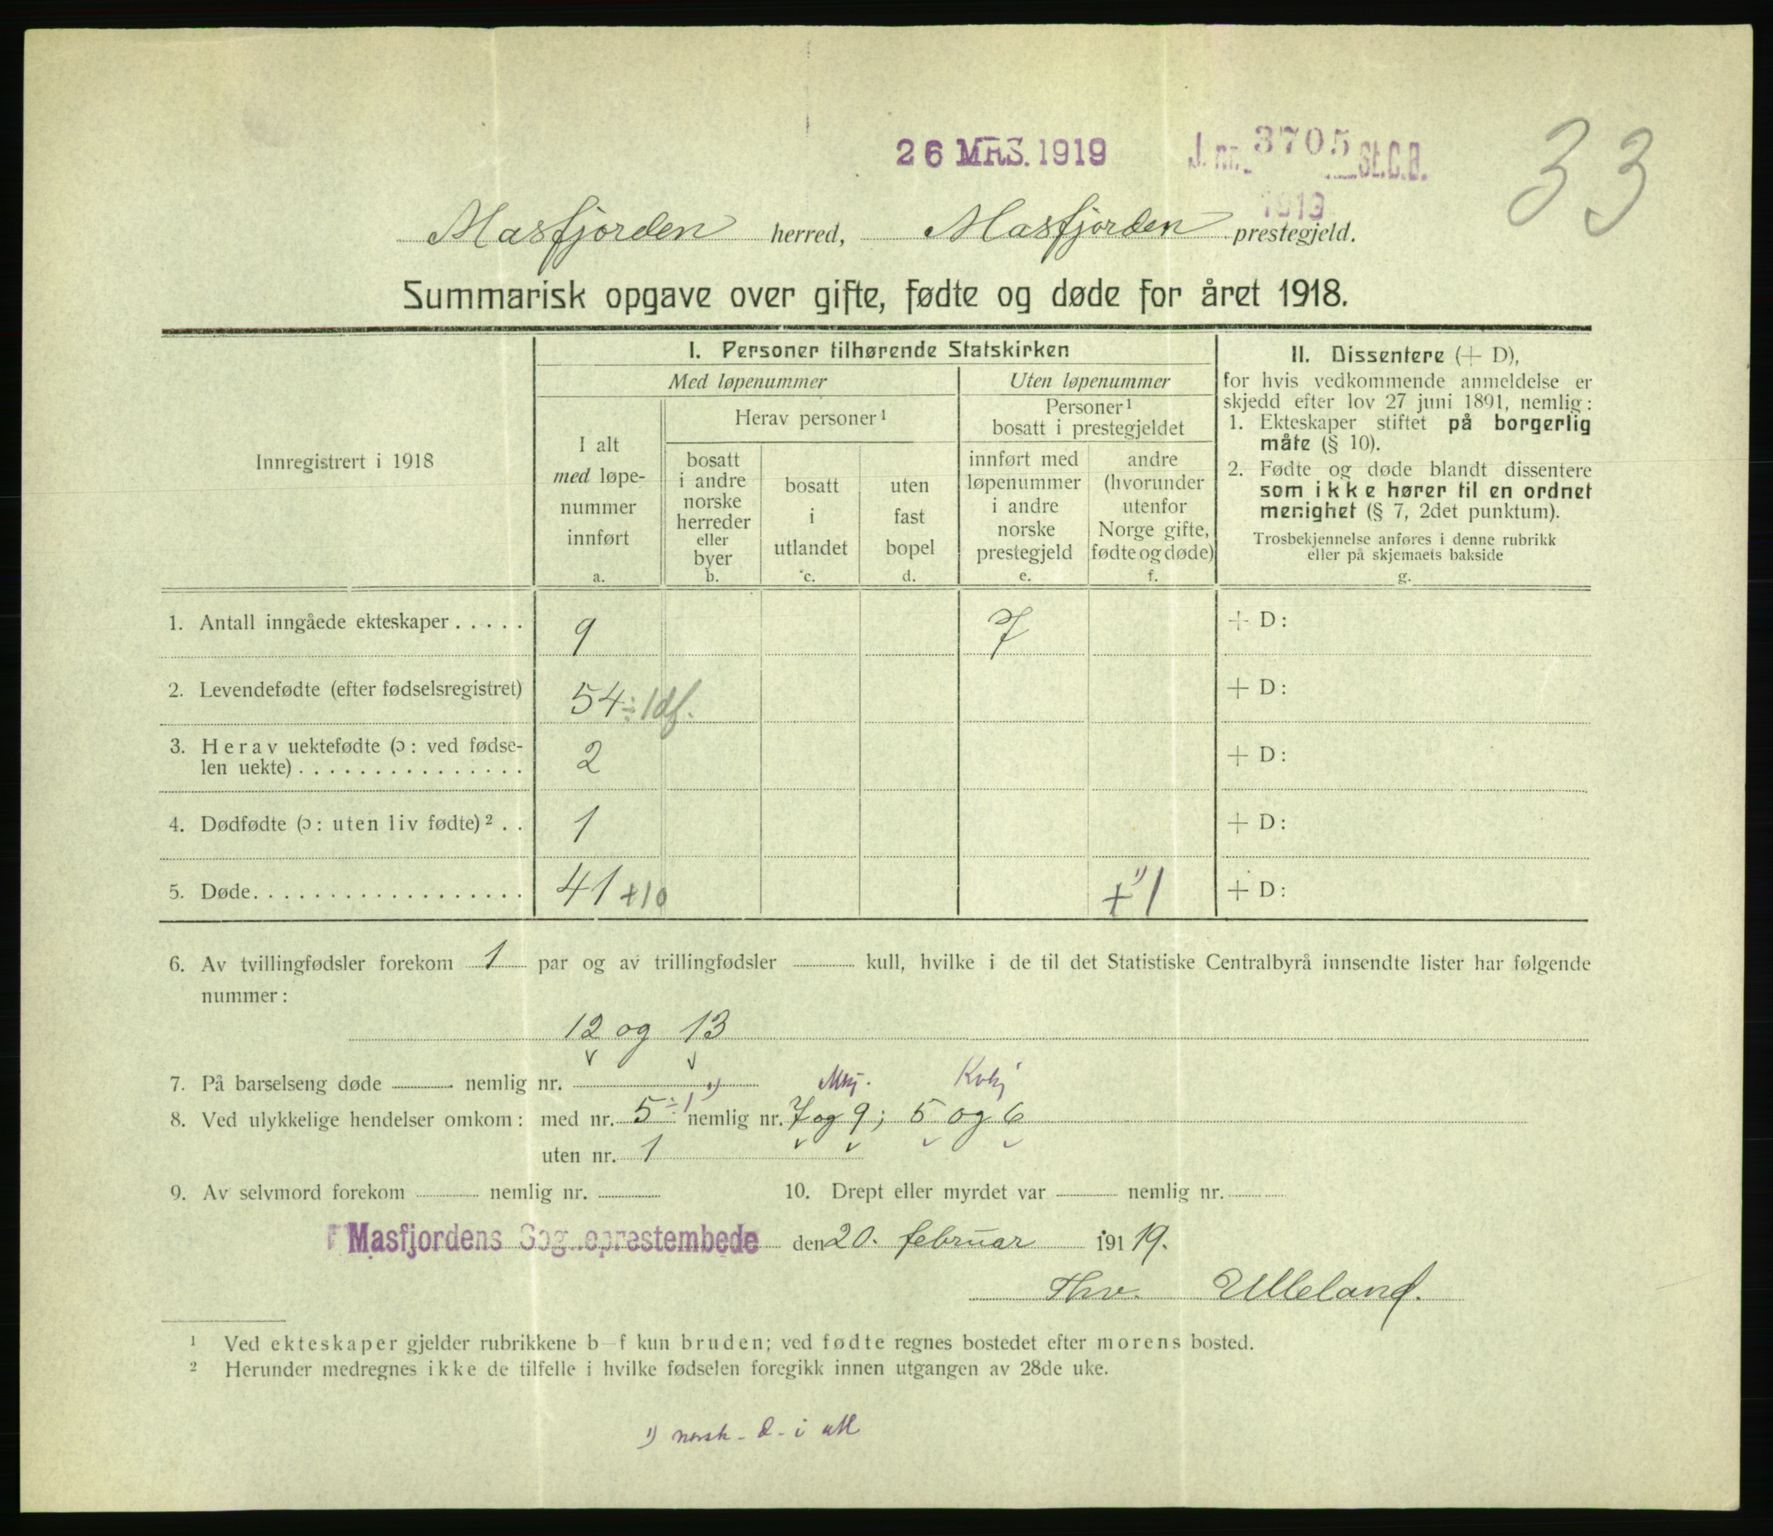 26 MRS. 1919 J. nr. 3705 St.C.B. 33
1919
Masfjorden herred, Masfjorden prestegjeld.
Summarisk opgave over gifte, fødte og døde for året 1918.
Innregistrert i 1918
I. Personer tilhørende Statskirken
Med løpenummer
Uten løpenummer
I alt
med løpe-
nummer
innført
a.
Herav personer ¹
bosatt
i andre
norske
herreder
eller
byer
b.
bosatt
i
utlandet
c.
uten
fast
bopel
d.
Personer ¹
bosatt i prestegjeldet
innført med
løpenummer
i andre
norske
prestegjeld
e.
andre
(hvorunder
utenfor
Norge gifte,
fødte og døde)
f.
II. Dissentere (+ D),
for hvis vedkommende anmeldelse er
skjedd efter lov 27 juni 1891, nemlig:
1. Ekteskaper stiftet på borgerlig
måte (§ 10).
2. Fødte og døde blandt dissentere
som ikke hører til en ordnet
menighet (§ 7, 2det punktum).
Trosbekjennelse anføres i denne rubrikk
eller på skjemaets bakside
g.
1. Antall inngåede ekteskaper . . . . . 9 7 + D:
2. Levendefødte (efter fødselsregistret) 54 ÷ 1 df. + D:
3. Herav uektefødte (ɔ: ved fødse-
len uekte) . . . . . . . . . . . . . . . 2 + D:
4. Dødfødte (ɔ: uten liv fødte) ² . . 1 + D:
5. Døde. . . . . . . . . . . . . . . . . . 41 +10 + ¹) 1 + D:
6. Av tvillingfødsler forekom 1 par og av trillingfødsler kull, hvilke i de til det Statistiske Centralbyrå innsendte lister har følgende
nummer:
12 og 13
7. På barselseng døde nemlig nr. Mkj. Kvkj
8. Ved ulykkelige hendelser omkom: med nr. 5 ÷ 1 ¹) nemlig nr. 7 og 9; 5 og 6
uten nr. 1
9. Av selvmord forekom nemlig nr. 10. Drept eller myrdet var nemlig nr.
Masfjordens Sogneprestembede den 20. februar 1919.
Thv. Ulleland.
¹ Ved ekteskaper gjelder rubrikkene b—f kun bruden; ved fødte regnes bostedet efter morens bosted.
² Herunder medregnes ikke de tilfelle i hvilke fødselen foregikk innen utgangen av 28de uke.
¹) norsk - d - i utl